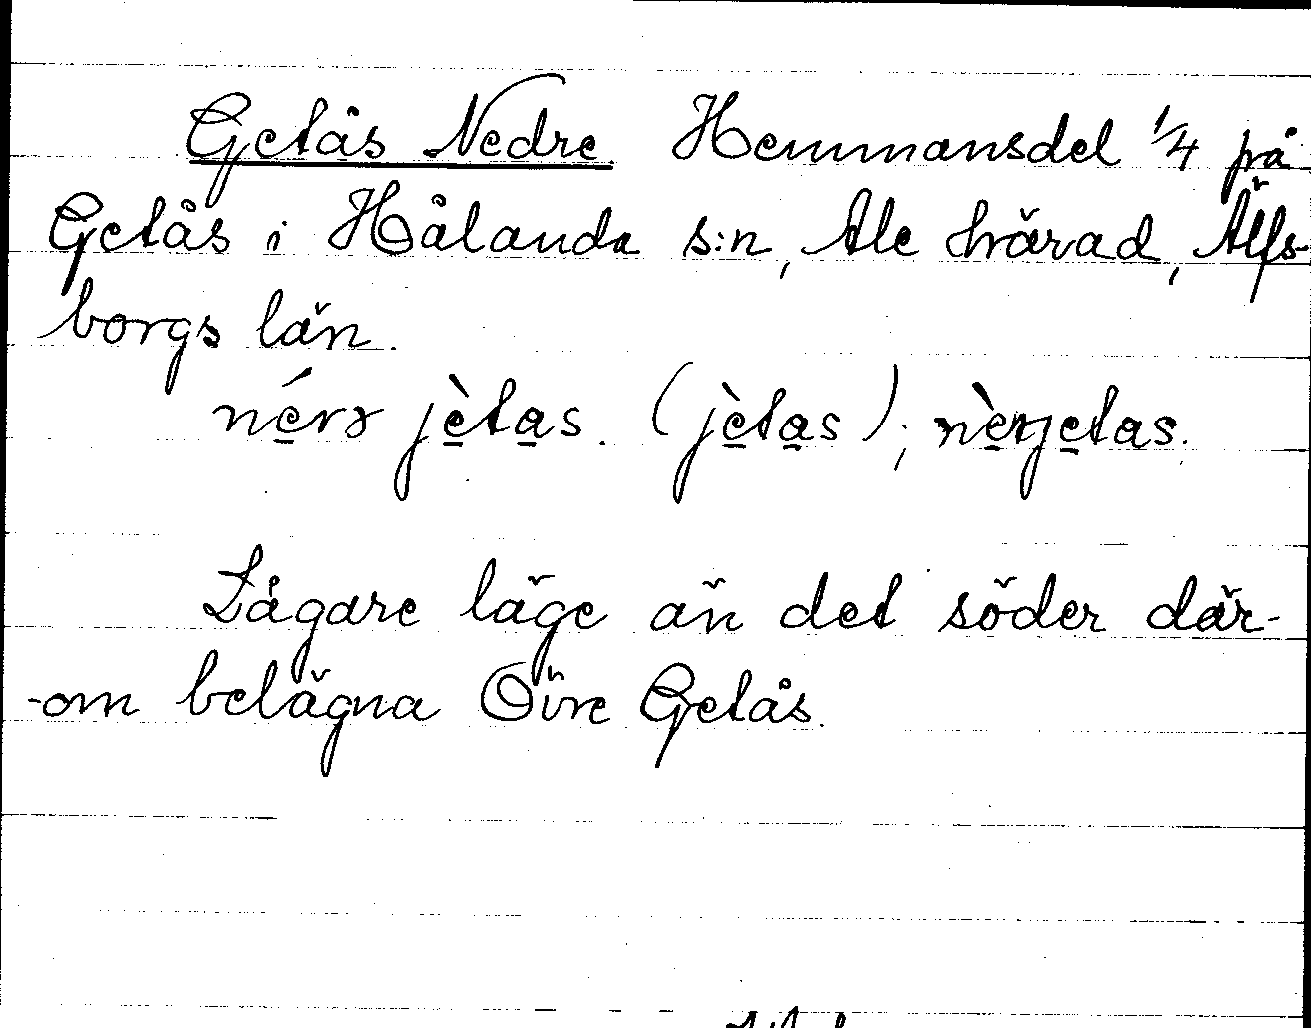 Getås Nedre Hemmansdel 1/4 på
Getås i Hålanda s:n, Ale härad, Älfs-
borgs län.
nérs jètas. (jètas); nèrjetas.
Lågare läge än det söder där-
-om belägna Övre Getås.